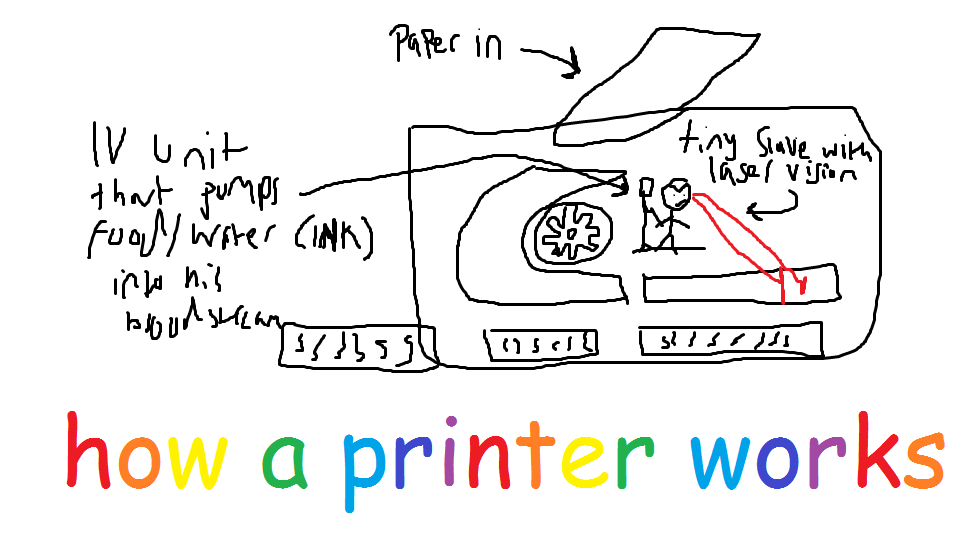 Paper in
IV unit
that pumps
food/water (INK)
into his
bloodstream
tiny slave with
laser vision
how a printer works